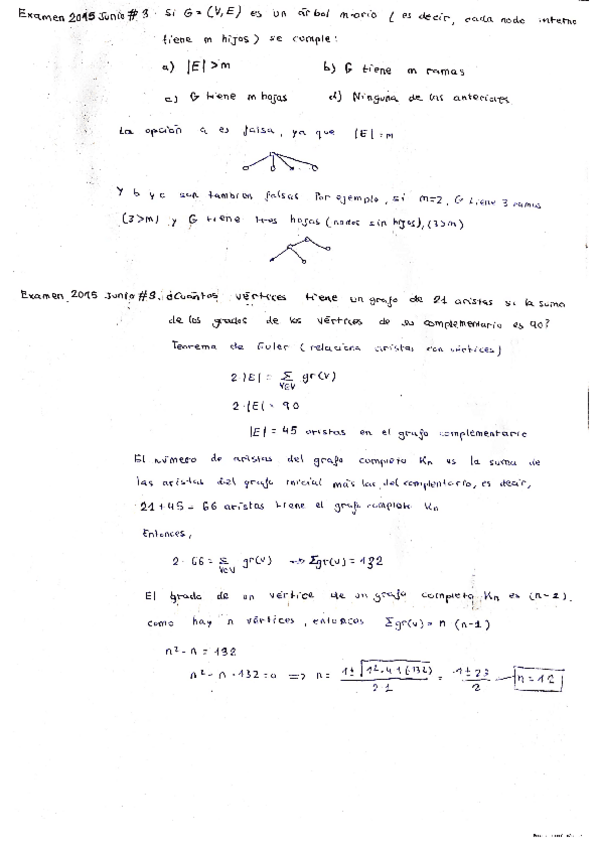 Examen 2015 Junio #3. Si G=(V,E) es un árbol m-ario (es decir, cada nodo interno
tiene m hijos) se cumple:
a) |E|>m b) G tiene m ramas
c) G tiene m hojas d) Ninguna de las anteriores
La opción a es falsa, ya que |E|=m
Y b y c son tambien falsas Por ejemplo, si m=2, G tiene 3 ramas
(3>m) y G tiene tres hojas (nodos sin hijos), (3>m)
Examen 2015 Junio #8. ¿Cuántos vértices tiene un grafo de 21 aristas si la suma
de los grados de los vértices de su complementario es 90?
Teorema de Euler (relaciona aristas con vértices)
2·|E| = Σ gr(V)
V∈V
2·|E| = 90
|E| = 45 aristas en el grafo complementario
El número de aristas del grafo completo Kn es la suma de
las aristas del grafo inicial más las del complentario, es decir,
21+45 = 66 aristas tiene el grafo completo Kn
Entonces,
2·66 = Σ gr(V) → Σgr(v) = 132
V∈V
El grado de un vértice de un grafo completo Kn es
como hay n vértices, entonces Σgr(v) = n (n-1)
n²-n = 132
n²-n-132=0 => n= 1±√1²-4·1(-132) / 2·1 = 1±23 / 2 n=12